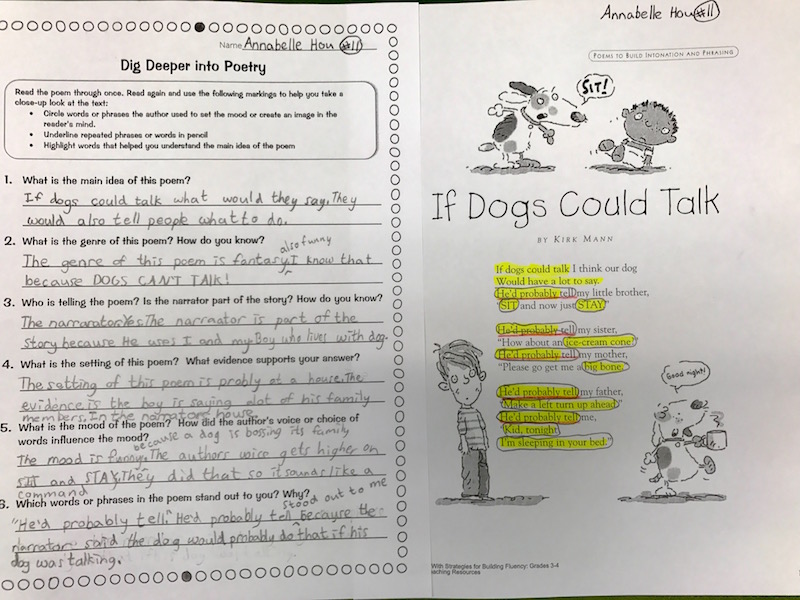 Name Annabelle Hou #11
Dig Deeper into Poetry
Read the poem through once. Read again and use the following markings to help you take a
close-up look at the text:
• Circle words or phrases the author used to set the mood or create an image in the
reader's mind.
• Underline repeated phrases or words in pencil
• Highlight words that helped you understand the main idea of the poem
1. What is the main idea of this poem?
If dogs could talk what would they say. They
would also tell people what to do.
2. What is the genre of this poem? How do you know?
also funny
The genre of this poem is fantasy. I know that
because DOGS CAN'T TALK!
3. Who is telling the poem? Is the narrator part of the story? How do you know?
The narrarator Yes The narraator is part of the
story because He uses I and my. Boy who lives with dog.
4. What is the setting of this poem? What evidence supports your answer?
The setting of this poem is probly at a house. The
evidence is the boy is saying alot of his family
members. In the narrators house.
5. What is the mood of the poem? How did the author's voice or choice of
words influence the mood?
because a dog is bossing its family
The mood is funny. The authors voice gets higher on
SIT and STAY. They did that so it sounds like a
command
6. Which words or phrases in the poem stand out to you? Why?
stood out to me
"He'd probably tell." He'd probably tell because the
narrator said the dog would probably do that if his
dog was talking.
Annabelle Hou #11
POEMS TO BUILD INTONATION AND PHRASING
SIT!
If Dogs Could Talk
BY KIRK MANN
If dogs could talk I think our dog
Would have a lot to say.
He'd probably tell my little brother,
"SIT and now just STAY."
He'd probably tell my sister,
"How about an ice-cream cone?"
He'd probably tell my mother,
"Please go get me a big bone."
He'd probably tell my father,
"Make a left turn up ahead."
He'd probably tell me,
"Kid, tonight
I'm sleeping in your bed."
Good night!
With Strategies for Building Fluency: Grades 3-4
eaching Resources